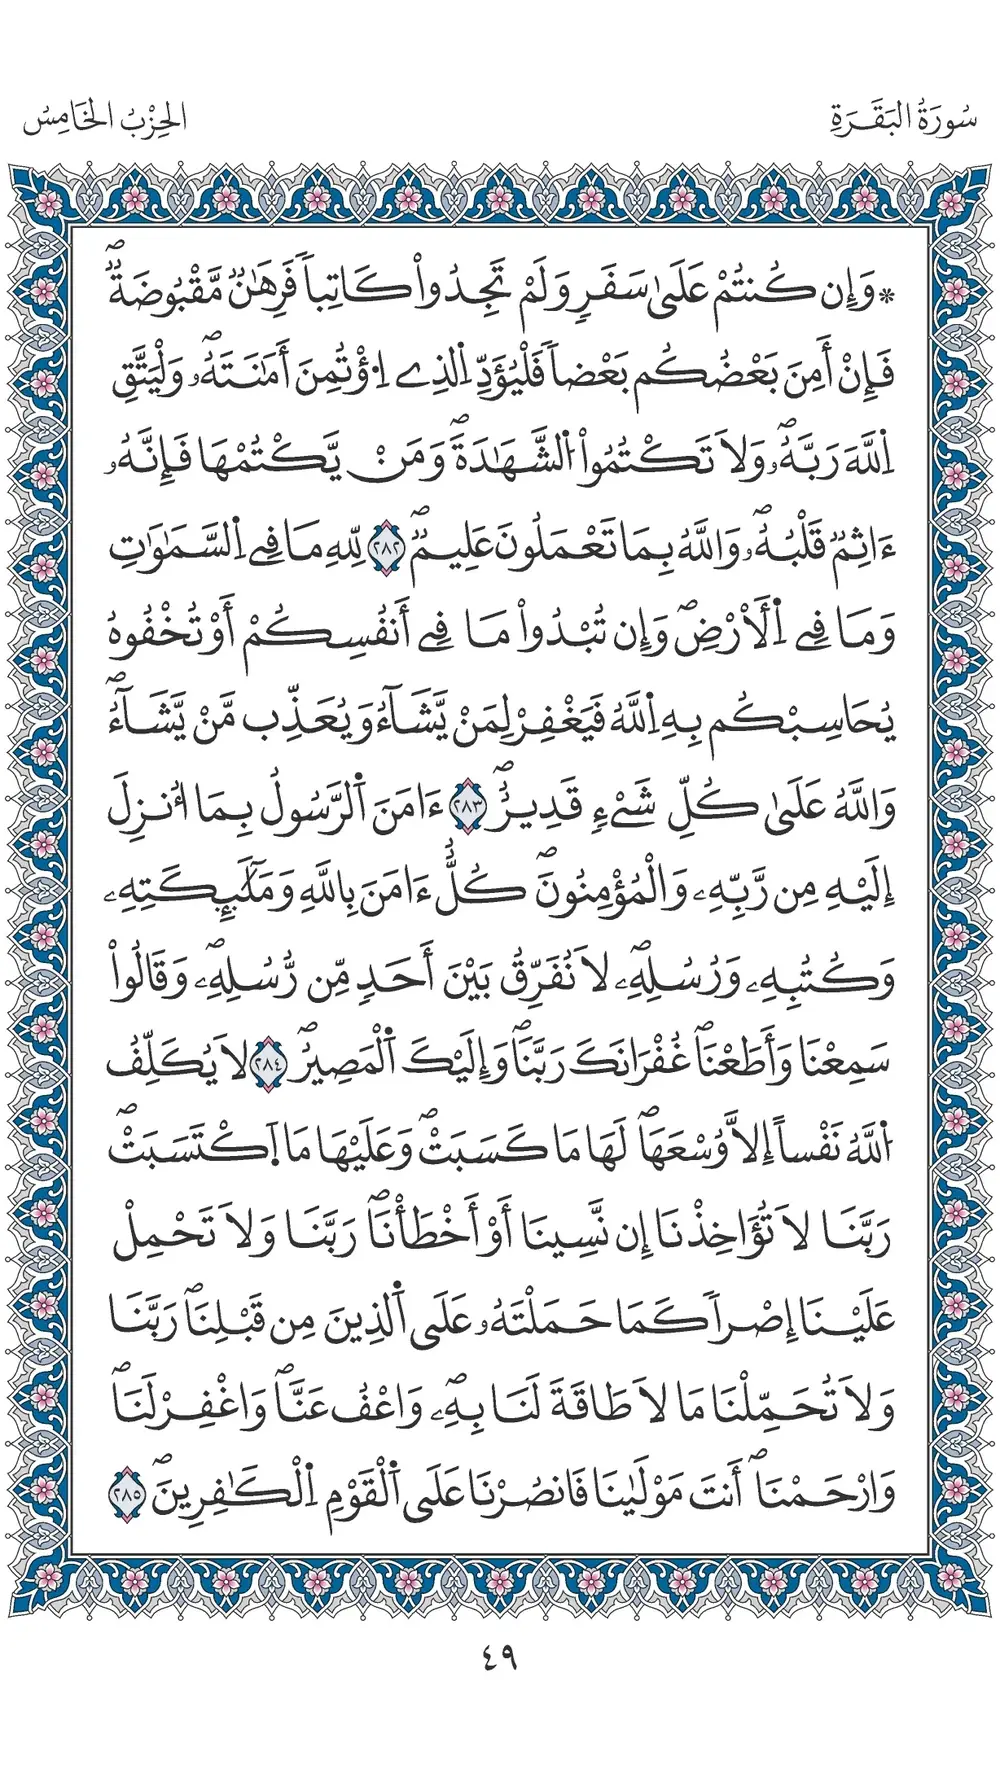 سُورَةُ البَقَرَةِ
الحِزْبُ الخَامِسُ
* وَإِن كُنتُمْ عَلَىٰ سَفَرٍ وَلَمْ تَجِدُواْ كَاتِباً فَرِهَٰنٌ مَّقْبُوضَةٌۖ
فَإِنْ أَمِنَ بَعْضُكُم بَعْضاً فَلْيُؤَدِّ اِ۬لذِے اِ۟ؤْتُمِنَ أَمَٰنَتَهُۥۖ وَلْيَتَّقِ
اِ۬للَّهَ رَبَّهُۥۖ وَلَا تَكْتُمُواْ اُ۬لشَّهَٰدَةَۖ وَمَنْ يَّكْتُمْهَا فَإِنَّهُۥ
ءَاثِمٌ قَلْبُهُۥۖ وَاللَّهُ بِمَا تَعْمَلُونَ عَلِيمٌۖ ٢٨٢ لِّلهِ مَا فِے اِ۬لسَّمَٰوَٰتِ
وَمَا فِے اِ۬لَارْضِۖ وَإِن تُبْدُواْ مَا فِے أَنفُسِكُمْ أَوْ تُخْفُوهُ
يُحَاسِبْكُم بِهِ اِ۬للَّهُ فَيَغْفِرْ لِمَنْ يَّشَآءُ وَيُعَذِّب مَّنْ يَّشَآءُۖ
وَاللَّهُ عَلَىٰ كُلِّ شَےْءٖ قَدِيرٌۖ ٢٨٣ ءَامَنَ اَ۬لرَّسُولُ بِمَا أُنزِلَ
إِلَيْهِ مِن رَّبِّهِۦ وَالْمُؤْمِنُونَۖ كُلٌّ ءَامَنَ بِاللَّهِ وَمَلَٰٓئِكَتِهِۦ
وَكُتُبِهِۦ وَرُسُلِهِۦۖ لَا نُفَرِّقُ بَيْنَ أَحَدٖ مِّن رُّسُلِهِۦۖ وَقَالُواْ
سَمِعْنَا وَأَطَعْنَاۖ غُفْرَانَكَ رَبَّنَاۖ وَإِلَيْكَ اَ۬لْمَصِيرُۖ ٢٨٤ لَا يُكَلِّفُ
اُ۬للَّهُ نَفْساً إِلَّا وُسْعَهَاۖ لَهَا مَا كَسَبَتْۖ وَعَلَيْهَا مَا اَ۪كْتَسَبَتْۖ
رَبَّنَا لَا تُؤَاخِذْنَا إِن نَّسِينَا أَوْ أَخْطَأْنَاۖ رَبَّنَا وَلَا تَحْمِلْ
عَلَيْنَا إِصْراً كَمَا حَمَلْتَهُۥ عَلَى اَ۬لذِينَ مِن قَبْلِنَاۖ رَبَّنَا
وَلَا تُحَمِّلْنَا مَا لَا طَاقَةَ لَنَا بِهِۦۖ وَاعْفُ عَنَّاۖ وَاغْفِرْ لَنَاۖ
وَارْحَمْنَاۖ أَنتَ مَوْلَىٰنَا فَانصُرْنَا عَلَى اَ۬لْقَوْمِ اِ۬لْكَٰفِرِينَۖ ٢٨٥
٤٩